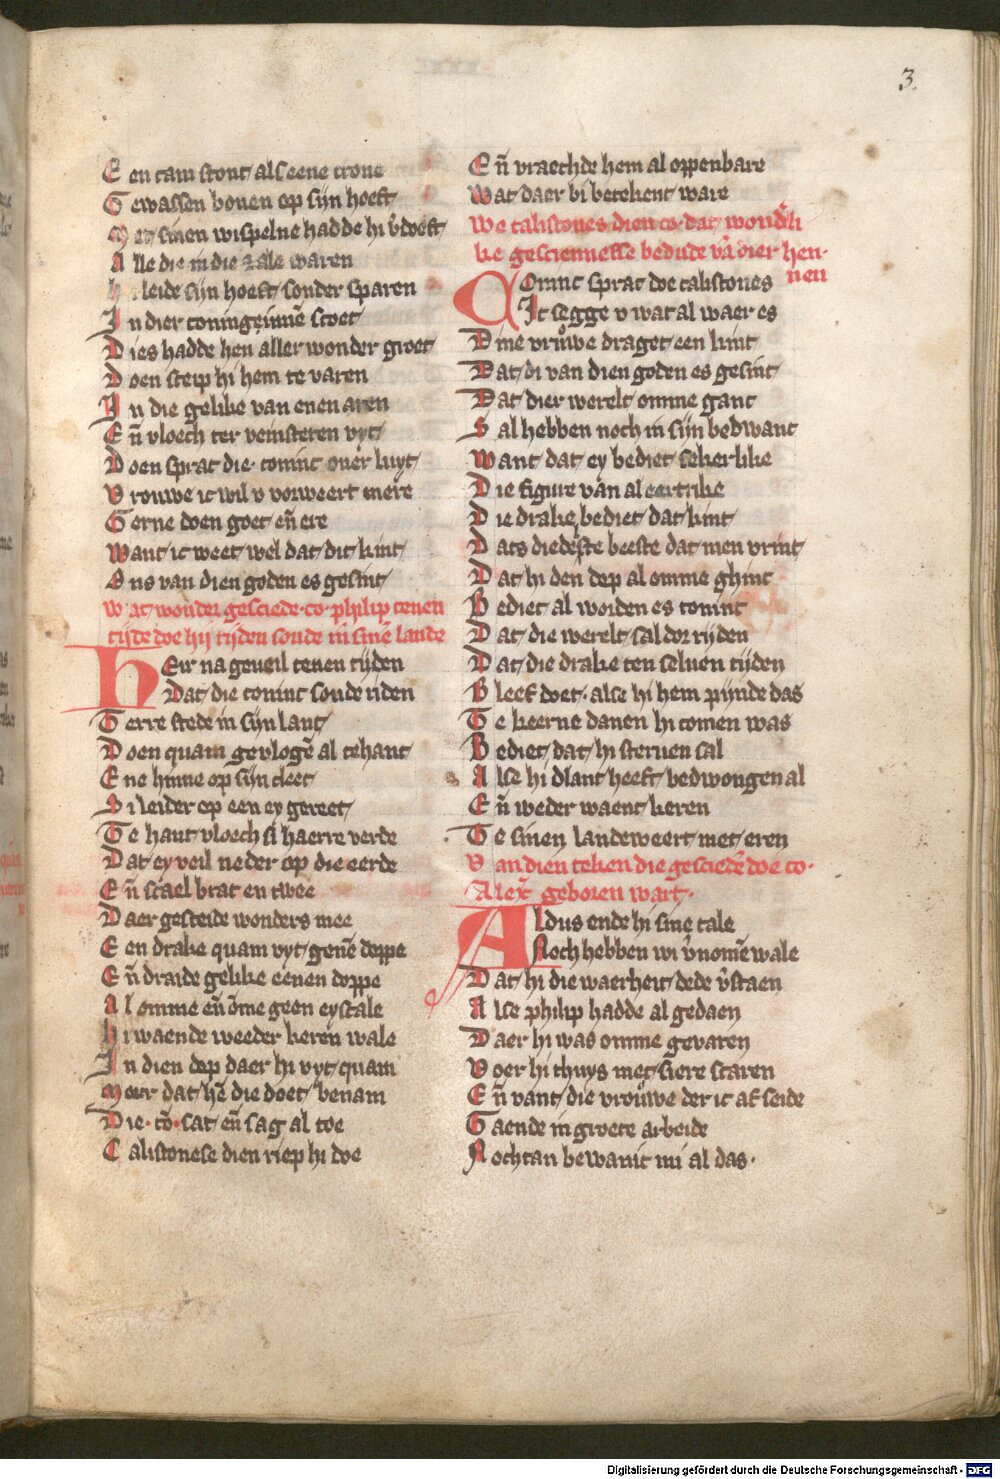 3.
Een cam stont als eene crone
Gewassen bouen op sijn hoeft
Met sinen wispelne hadde hi v̄doeft
Alle die in die zale waren
Hi leide sijn hoeft sonder sparen
In dier coninginnē scoet
Dies hadde hen aller wonder groet
Doen sciep hi hem te varen
In die gelike van enen aren
Eñ vloech ter veinsteren vyt
Doen sprac die coninc ouer luyt
Vrouwe ic wil v vorweert mere
Gerne doen goet eñ ere
Want ic weet wel dat dit kint
Ons van dien goden es gesint
Wat wonder gesciede co philip tenen
tijde doe hij rijden soude in sinē lande
Hier na geueil tenen tijden
Dat die coninc soude riden
Terre stede in sijn lant
Doen quam gevlogē al tehant
Ene hinne op sijn cleet
Si leider op een ey gereet
Te hant vloech si haerre verde
Dat ey veil neder op die eerde
Eñ scael brac en twee
Daer gesceide wonders mee
Een drake quam vyt genē doppe
Eñ draide gelike eenen doppe
Al omme eñ ōme geen eyscale
Hi waende weeder keren wale
In dien dop daer hi vyt quam
Meer dat hē die doet benam
Die · cō · sat eñ sag al toe
Calistonese dien riep hi doe
Eñ vraechde hem al oppenbare
Wat daer bi betekent ware
We calistones dien co · dat wond̄li
ke gesciennesse bedude vā dier hen-
nen
Coninc sprac doe calistones
Ic segge v wat al waer es
Dine vrouwe draget een kint
Dat di van dien goden es gesint
Dat dier werelt omme ganc
Sal hebben noch in sijn bedwanc
Want dat ey bediet sekerlike
Die figure van al eertrike
Die drake bediet dat kint
Dats diedeste beeste dat men vrint
Dat hi den dop al omme ghinc
Bediet al worden es coninc
Dat die werelt sal dor rijden
Dat die drake ten seluen tijden
Bleef doet · alse hi hem pijnde das
Te keerne danen hi comen was
Bediet dat hi steruen sal
Alse hi dlant heeft bedwongen al
Eñ weder waent keren
Te sinen landeweert met eren
Van dien teken die gesciedē doe co ·
Alex̄ geboren wart ·
Aldus ende hi sine tale
Noch hebben wi v̄nomē wale
Dat hi die waerheit dede v̄staen
Alse philip hadde al gedaen
Daer hi was omme gevaren
Voer hi thuys met siere scaren
Eñ vant die vrouwe der ic af seide
Gaende in groete arbeide
Nochtan bewanic mi al das ·
Digitalisierung gefördert durch die Deutsche Forschungsgemeinschaft - DFG